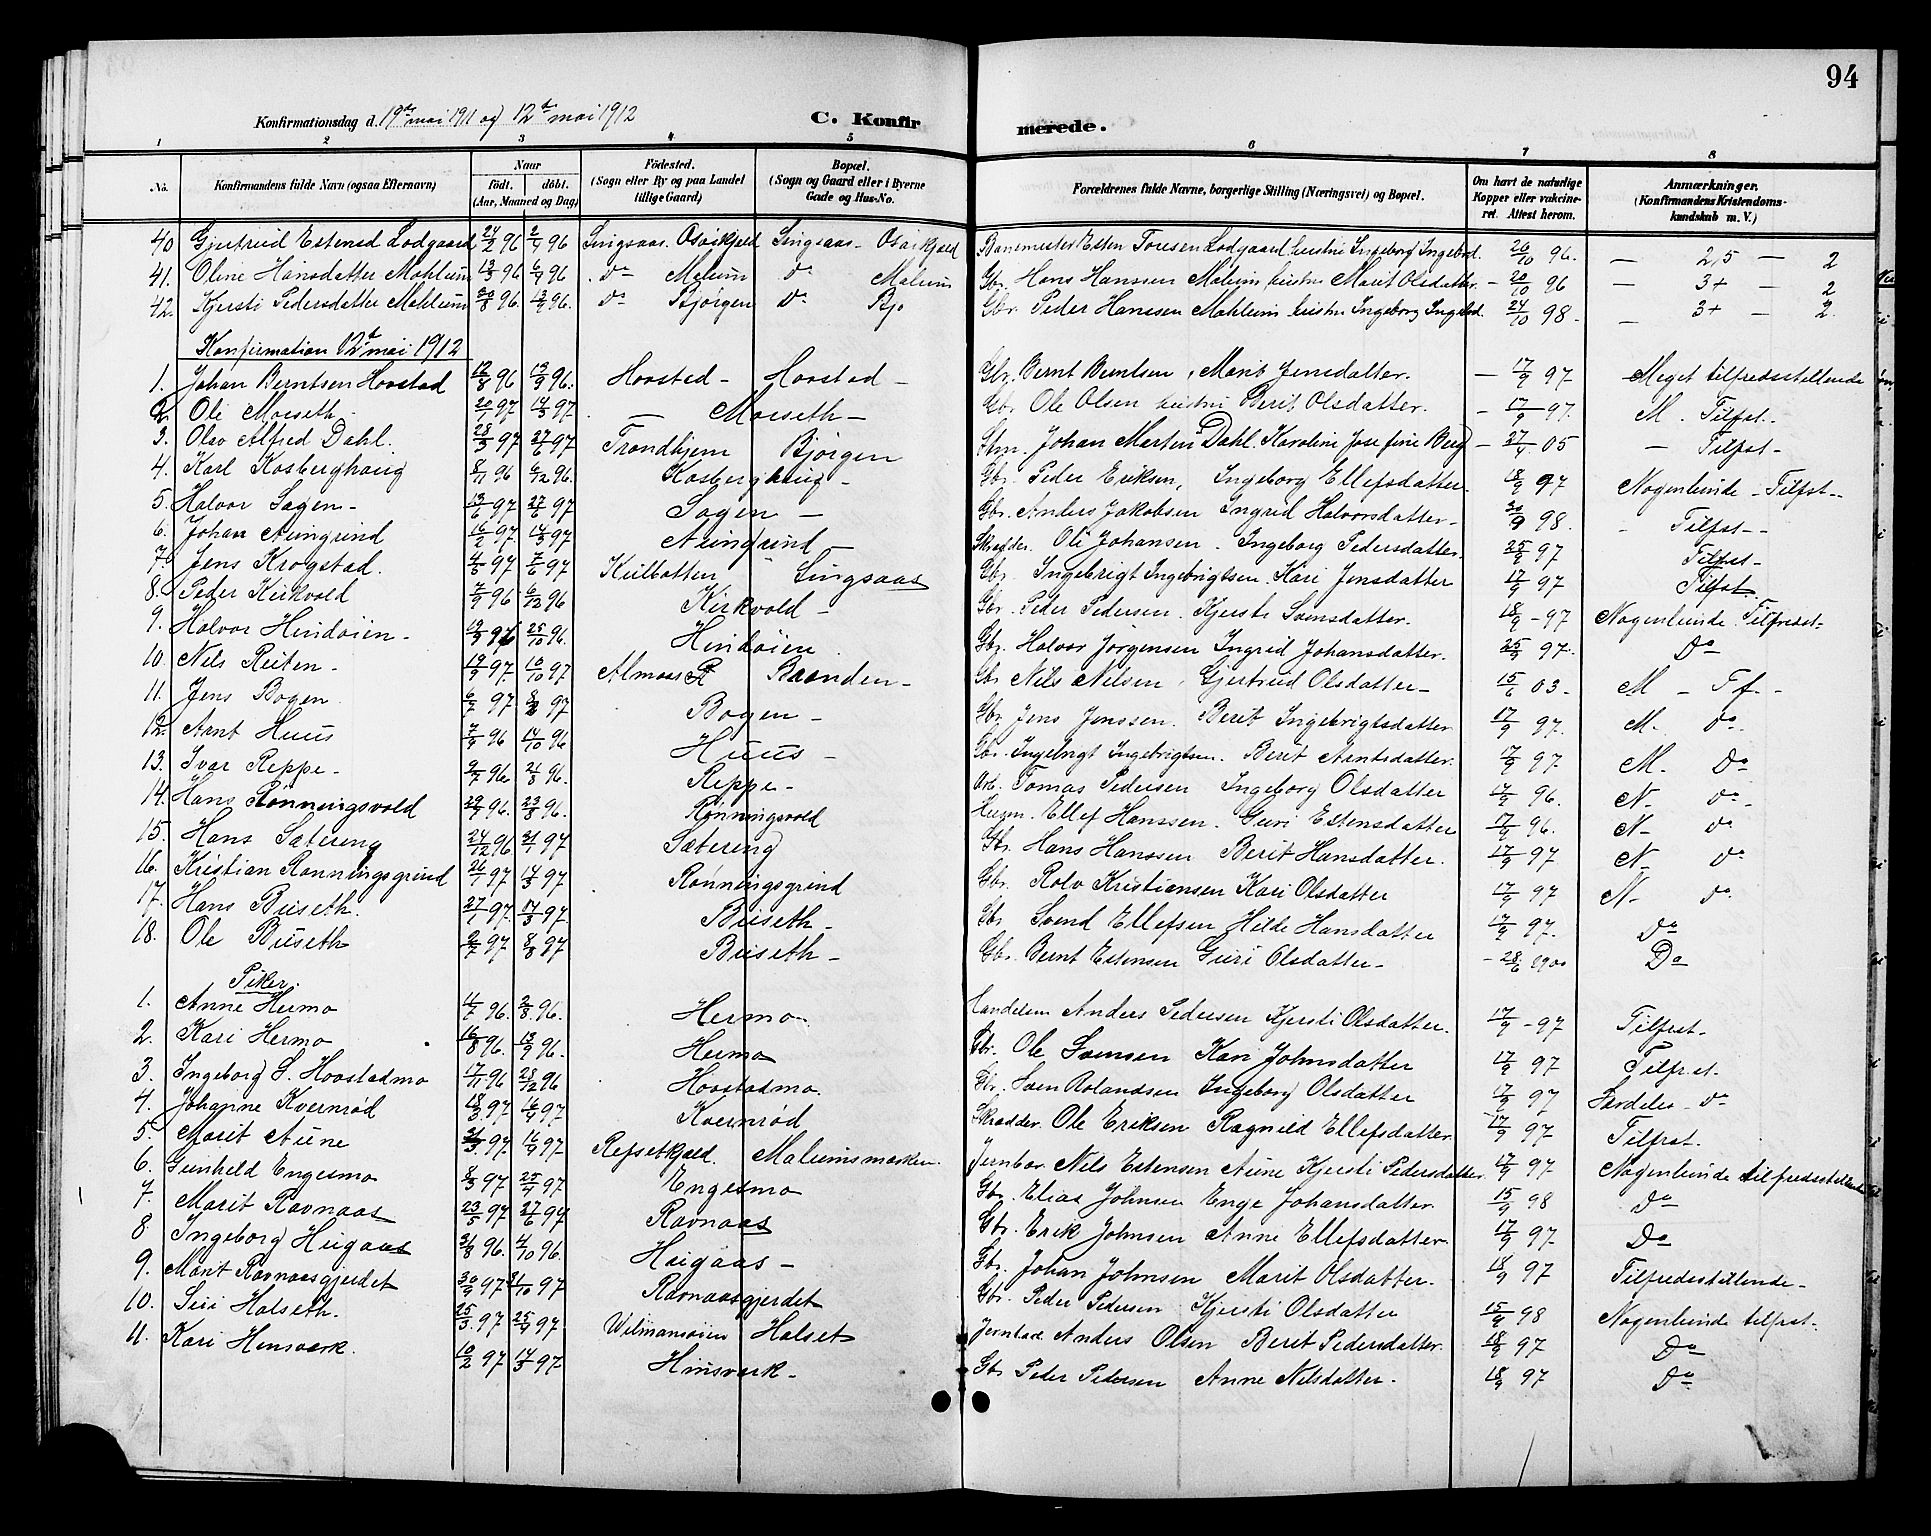 94
Konfirmationsdag d. 19de mai 1911 og 12te mai 1912 C. Konfirmerede.
1 2 3 4 5 6 7 8
No. Konfirmandens fulde Navn (ogsaa Efternavn) Naar født. døbt. (Aar, Maaned og Dag) Fødested. (Sogn eller By og paa Landet tillige Gaard) Bopæl. (Sogn og Gaard eller i Byerne Gade og Hus-No. Forældrenes fulde Navne, borgerlige Stilling (Næringsvei) og Bopæl. Om havt de naturlige Kopper eller vakcineret. Attest herom. Anmærkninger. (Konfirmandens Kristendomskundskab m. V.)
40 Gjertrud Estensd Lodgaard 24/2 96 2/4 96 Singsaas Osøikjeld Singsaas - Osøikjeld Banemester Esten Toresen Lodgaard hustru Ingeborg Ingebrd. 26/10 96. — 2,5 — 2
41. Oline Hansdatter Mahlum 13/3 96 6/4 96 do Malum do Malum Gbr. Hans Hanssen Malum hustru Marit Olsdatter - 20/10 96 — 3+ — 2
42. Kjersti Pedersdatter Mahlum 20/8 96 13/9 96. do Bjørgen do Bjo Gbr. Peder Hanssen Mahlum hustru Ingeborg Ingebrd. 24/10 98 - — 3+ — 2
Konfirmation 12te mai 1912
1. Johan Berntsen Hovstad 12/8 96 13/9 96. Hovstad - Hovstad - Gbr. Bernt Berntsen, Marit Jensdatter. - 17/9 97 Meget tilfredsstillende
2. Ole Moseth - 20/1 97 14/3 97 — Moseth — Gbr Ole Olsen hustru Berit Olsdatter. - 17/9 97. M. Tilfst.
3. Olav Alfred Dahl. 28/3 97 27/6 97 Trondhjem Bjørgen Johan Morten Dahl. Karoline Josefine Berg - 27/4 05 — Tilfst -
4. Karl Kosberghaug 8/11 96 6/12 96. Kosberghaug - Gbr. Peder Eriksen, Ingeborg Ellefsdatter 18/9 97 Nogenlunde - Tilfst -
5. Halvor Sagen - 13/6 97 27/6 97 Sagen — Gbr. Anders Jakobsen Ingrid Halvorsdatter - 30/9 98. - Tilfst -
6. Johan Aungrind 16/2 97. 14/3 97 Aungrind - Skrædder. Ole Johansen. Ingeborg Pedersdatter. 25/9 97 Tilfst -
7. Jens Krogstad. 4/5 97 7/6 97 Singsaas Gbr. Ingebrigt Ingebrigtsen Kari Jensdatter 17/9 97 Tilfst.
8. Peder Kirkvold 7/9 96 6/12 96 Kirkvold - Gbr. Peder Pedersen. Kjersti Svensdatter. 18/9 - 97 Nogenlunde Tilfredst -
9. Halvor Hindøien - 19/9 96 25/10 96. Hindøien Gbr. Halvor Jørgensen Ingrid Johansdatter. 25/9 97. Do
10. Nils Reiten - 19/9 97. 10/10 97 Almaas Braanden - Gbr Nils Nilsen, Gjertrud Olsdatter - 15/6 03 - M - Tf. -
11. Jens Bogen 6/7 97 8/8 97 Bogen - Gbr Jens Jenssen. Berit Ingebrigtsdatter 17/9 97. M. do
12. Arnt Huus 7/9 96 14/10 96 Huus - Gbr. Ingebrigt Ingebrigtsen. Berit Arntsdatter. 17/9 97. M. Do
13. Ivar Reppe - 9/7 96 21/8 96. Reppe - Arb. Tomas Pedersen Ingeborg Olsdatter 17/9 96. N - do -
14. Hans Rønningsvold 29/7 96. 23/8 96. Rønningsvold Husm. Ellef Hanssen. Guri Estensdatter 17/9 96. N - do
15. Hans Sætereng 24/12 96 31/1 97 Sætereng Gbr. Hans Hanssen Berit Hansdatter. 17/9 97 N - do
16. Kristian Rønningsgrind 26/1 97 14/3 97 Rønningsgrind Gbr. Rolv Kristiansen Kari Olsdatter 17/9 97 N - do
17. Hans Buseth. 27/1 97. 14/3 97. Buseth - Gbr. Svend Ellefsen Hilde Hansdatter 17/9 97. Do
18. Ole Buseth 9/7 97 8/8 97 Buseth - Gbr. Bernt Estensen Guri Olsdatter - - 28/6 1900 Do
Piker.
1. Anne Hermo 4/7 96. 2/8 96. Hermo. Handelsm Anders Pedersen Kjersti Olsdatter. 17/9 - 97 Tilfrst -
2. Kari Hermo 16/8 96. 13/9 96. Hermo Gbr. Ole Svensen Kari Johnsdatter 17/9 97 Tilfrst.
3. Ingeborg S. Hovstadmo 17/11 96 28/12 96 Hovstadmo. Gbr. Sven Rolandsen Ingeborg Olsdatter 17/9 97 Særdeles - do
4. Johanne Kvernrød 18/3 97 16/4 97 Kvernrød Skrædder Ole Eriksen Ragnild Ellefsdatter 17/9 97 Tilfrst.
5. Marit Aune 21/3 97. 16/4 97 Refsetkjeld. Malumsmarken. Jernbar. Nils Estensen Aune Kjersti Pedersdatter. 17/9 97 Nogenlunde tilfredsstillende
6. Gunhild Engesmo 8/3 97 25/4 97 Engesmo Gbr. Elias Johnsen Enge Johansdatter 15/9 98 Do
7. Marit Ravnaas 23/5 97 27/6 97 Ravnaas Gbr. Erik Johnsen Anne Ellefsdatter 17/9 97 Do
8. Ingeborg Haugaas 31/8 96. 4/10 96. Haugaas - Gbr. Johan Johnsen Marit Olsdatter. 18/9 97 Tilfredsstillende -
9. Marit Ravnaasgjerdet 30/9 97 31/10 97 Ravnaasgjerdet Gbr. Peder Pedersen Kjersti Olsdatter 15/9 98 Nogenlunde tilfrst.
10. Siri Halseth. 25/3 97 25/4 97 Wilmansøien Halset Jernbar Anders Olsen Berit Pedersdatter 18/9 97 Do
11. Kari Hinsverk. 10/2 97 14/3 97 Hinsverk - Gbr Peder Pedersen Anne Nilsdatter. 18/9 97 Do